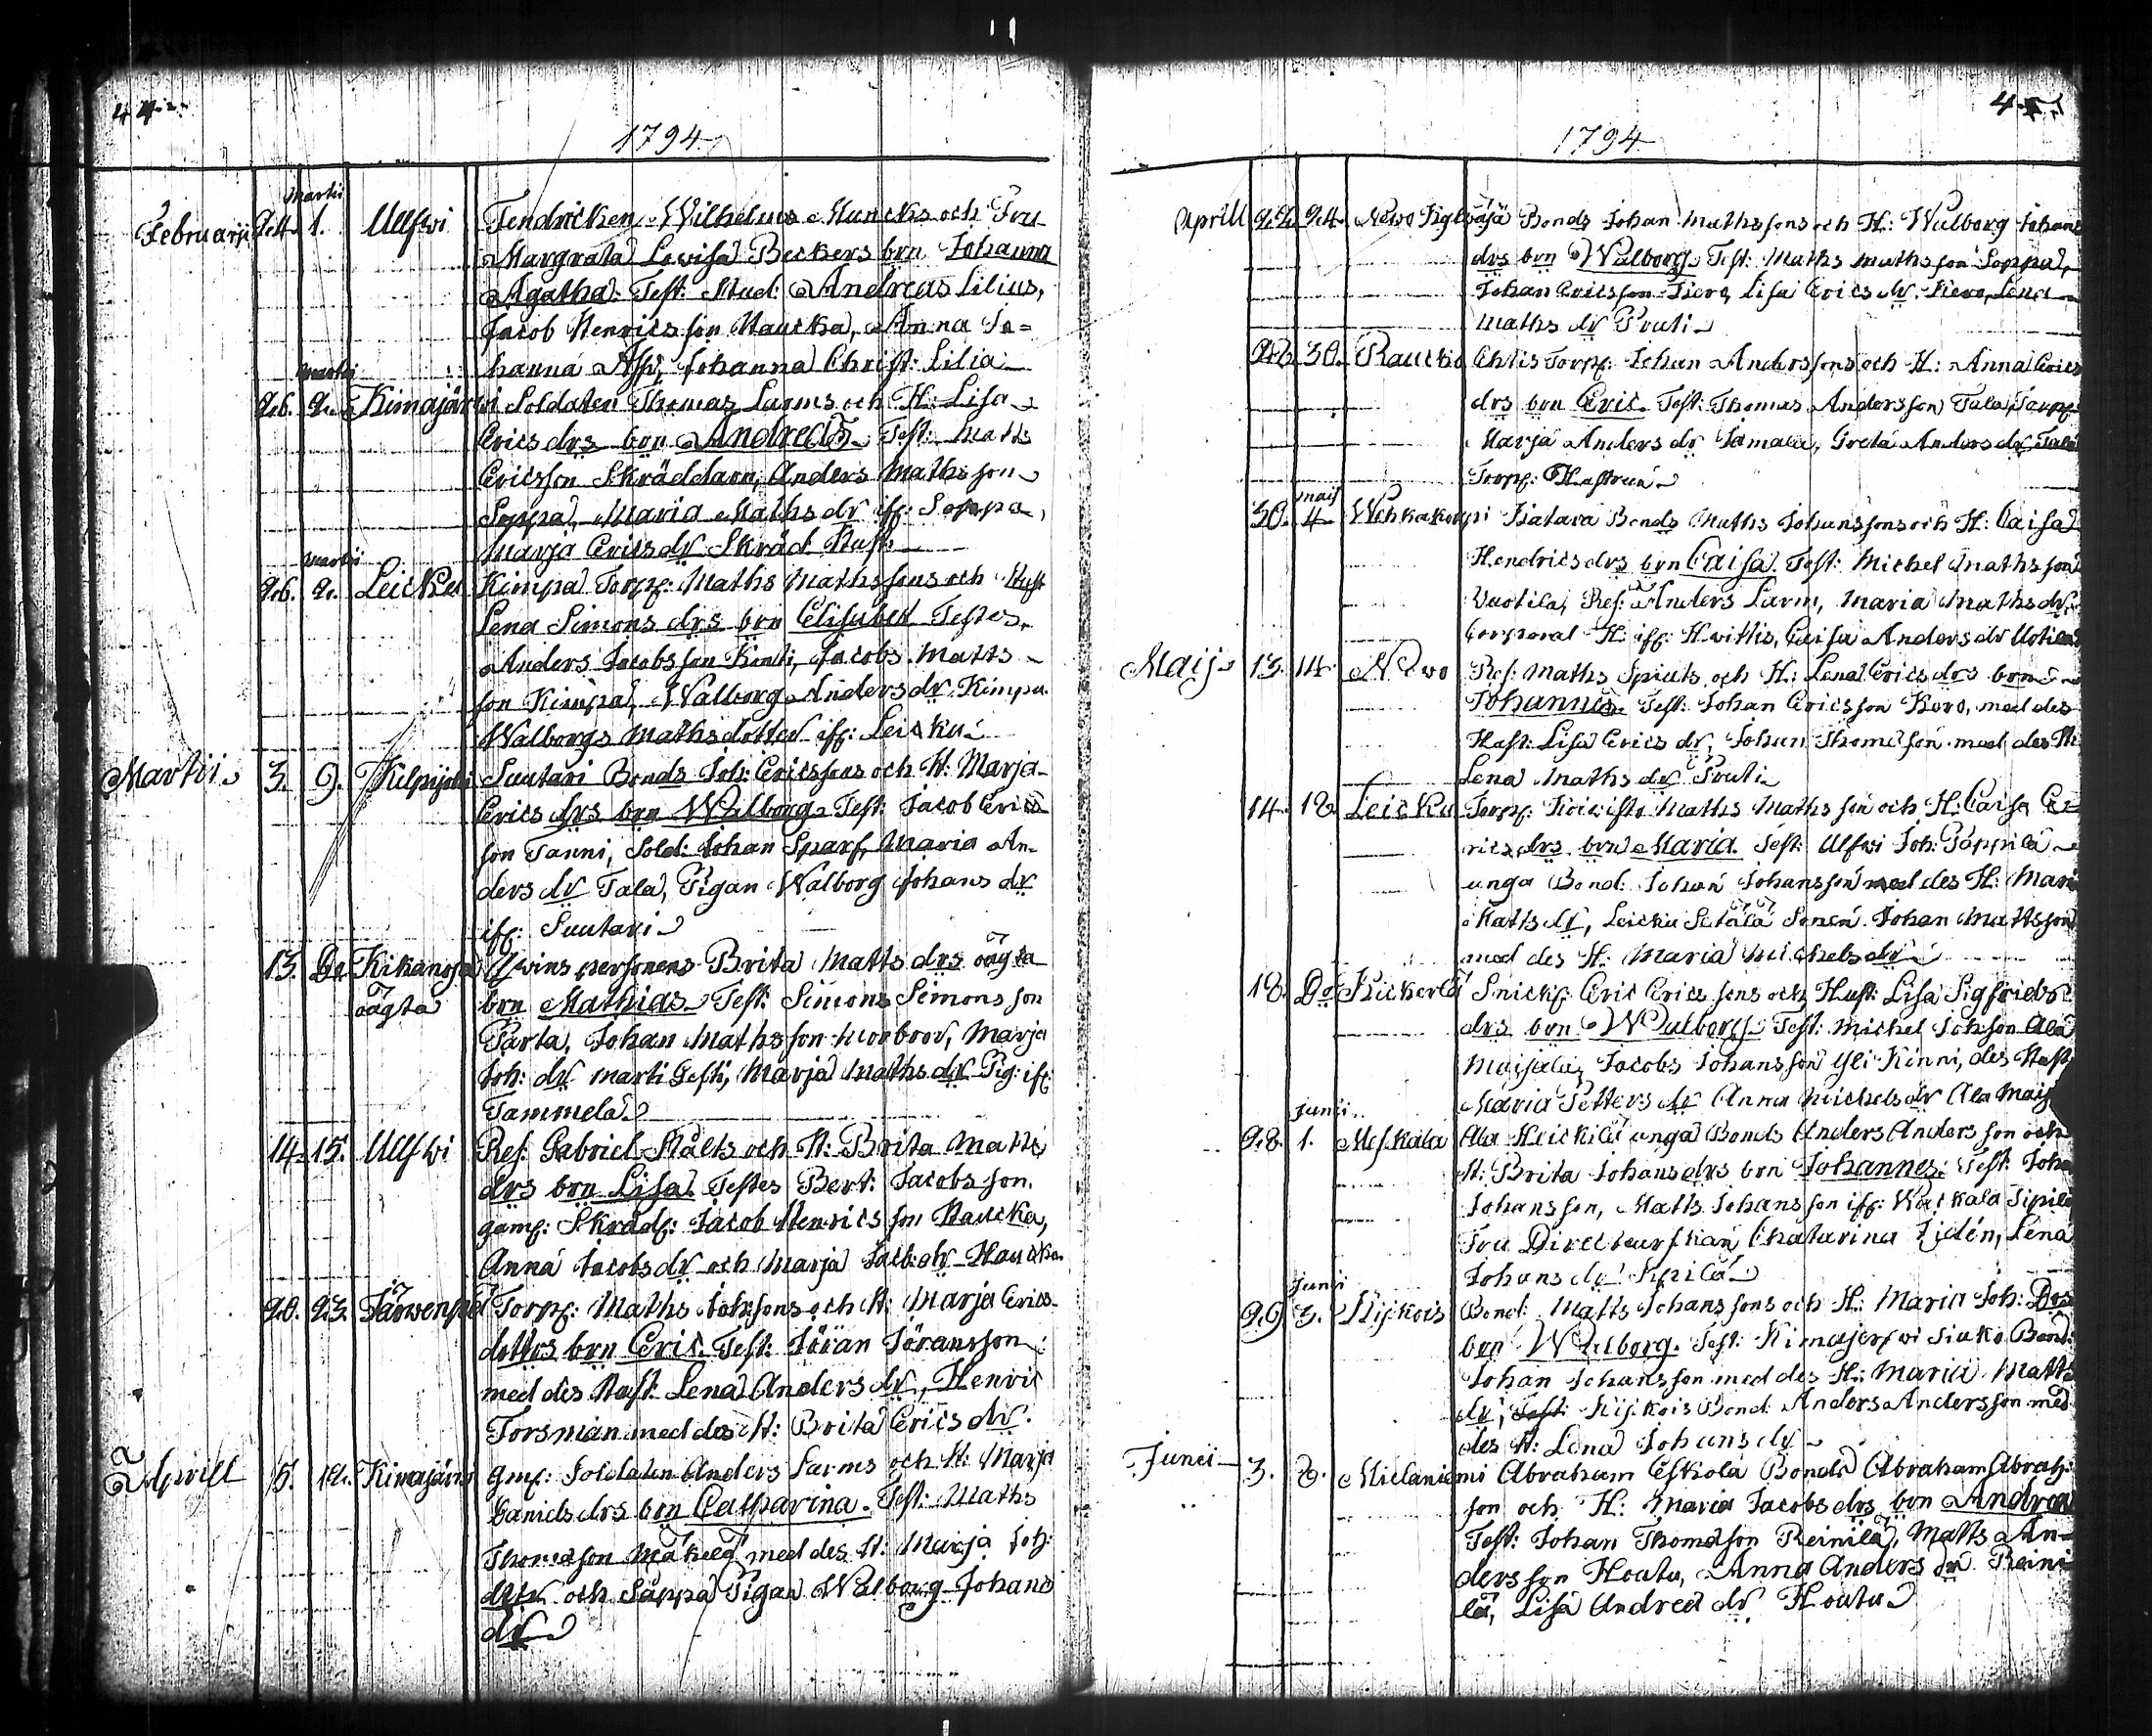 44
1794
Martii
Februarii 24. 1. Ulfwi Fendricken Wilhelms Muncks och Fru
Margrata Lovisa Beckers brn Johanna
Agatha. Test: Stud: Andreas Lilius,
Jacob Henricsson Haucka, Anna Jo=
hanna Asp, Johanna Christ: Lilia
Martii
26. 2. Kimajärwi Soldaten Thomas Larms och H: Lisa
Erics drs brn Andreas Test: Matts
Ericsson Skräddare, Anders Mathsson
Soppa, Maria Maths dr if: Soppa,
Marja Erics dr Skräd Hust:
Martii
26. 2. Leicku Kimpa Torp: Maths Mathssons och Hust
Lena Simons drs brn Elisabet Testes,
Anders Jacobsson Knuti, Jacobs Matts
son Kimpa, Walborg Anders dr Kimpa
Walborgs Mathsdotter if: Leicku
Martii 3. 9. Kulpijoki Suutari Bonds Joh: Ericssons och H: Marja
Erics drs brn Walborg Test: Jacob Erics
son Tanni, Sold: Johan Sparf, Maria An-
ders dr Tala, Pigan Walborg Johans dr
if: Suutari
13. Do Kikanoja Qwins personens Brita Matts drs oägta
oägta brn Mathias Test: Simons Simons son
Parta, Johan Mathsson Morbror, Marja
Joh: dr Marti Gesti, Marja Maths dr Pig: if:
Tammela
14. 15. Ulfwi Res: Gabriel Stålts och H: Brita Matts
drs brn Lisa. Testes Bert: Jacobsson.
gamf: Skrädf: Jacob Henricsson Haucka,
Anna Jacobs dr och Marja Jack: dr Haucka
20. 23. Järwenpä Torp: Maths Johssons och H: Marja Erics-
dotters brn Eric. Test: Jöran Jöransson
med des Hust: Lena Anders dr, Henric
Forsman med des H: Brita Erics dr.
Aprill 5. 12. Kimajärwi gmf: Soldaten Anders Larms och H: Marja
Daniels drs brn Catharina. Test: Maths
Thomasson Mäkelä med des H: Marja Joh:
dotr och Sappa Pigan Walborg Johans
dr
45
1794
Aprill 22. 24. Newo Bonds Johan Mathssons och H: Walborg Johans
drs brn Walborg. Test: Maths Mathsson Soppa,
Johan Ericsson Kero, Lisa Erics dr. Kero, Lena
Maths dr Pruti
26. 30. Rauckio Torp: Johan Anderssons och H: Anna Erics
drs brn Eric. Test: Thomas Andersson Tala Torp:
Marja Anders dr Jamala, Greta Anders dr Tala
Torp: Hustrun
maij
30. 4. Wehkakorpi Katara Bonds Maths Johanssons och H: Caisa
Hendrics drs brn Caisa. Test: Michel Mathsson
Uotila, Res: Anders Larm, Maria Maths dr,
Corporal H: if: Hwittis, Caisa Anders dr Uotila
Maij 13. 14. Newo Res: Maths Spiuts och H: Lena Erics drs brn
Johannes. Test: Johan Ericsson Kero, med des
Hust: Lisa Erics dr, Johan Thomasson med des H:
Lena Maths dr Pruti
14. 18. Leicku Torp: Koiwisto Maths Mathsson och H: Caisa Er=
rics drs brn Maria. Test: Ulfwi Joh: Pappila
unga Bond: Johan Johansson med des H: Maria
Matts dr, Leicku Setälä Sonen Johan Mattsson
med des H: Maria Michels dr
18. Do Kickerlä Snickf: Eric Erics sons och Hust: Lisa Sigfrids
drs brn Walborg. Test: Michel Johsson Ala
Maijala, Jacobs Johansson Yli Kinni, des Hust:
Maria Petters dr Anna Michels dr Ala Maij
Junii
28. 1. Meskala Ala Heickilä unga Bonds Anders Anders son och
H: Brita Johans drs brn Johannes. Test: Joha
Johansson, Matts Johansson if: Sipilä
Fru Directeurskan Chatarina Tidén, Lena
Johans dr Sipilä
Junii
29. 3. Kijkois Bond: Matts Johanssons och H: Maria Joh: Drs
brn Walborg. Test: Kimajerfwi Siuko Bond:
Johan Johansson med des H: Maria Matts
dr, Kijkois Bond: Anders Andersson med
des H: Lena Johans dr
Junii 3. 8. Mielaniemi Abraham Eskola Bonds Abraham Abrah:
son och H: Maria Jacobs drs brn Andrea
Test: Johan Thomasson Reinilä, Matts An-
dersson Hoatu, Anna Anders dr Reini
lä, Lisa Andrea dr Hoatu